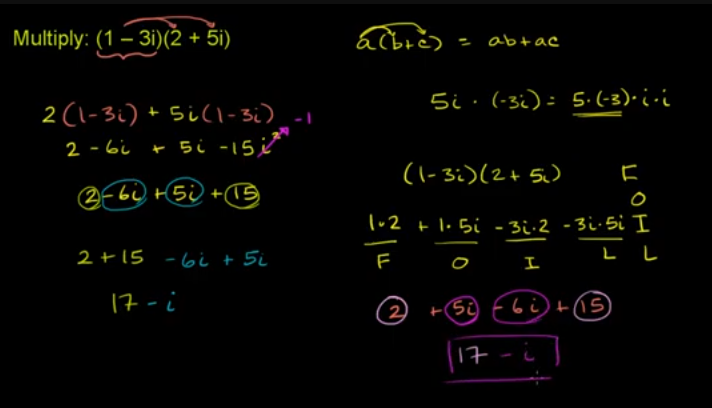 Multiply: (1 – 3i)(2 + 5i)
2(1-3i) + 5i(1-3i)
2 - 6i + 5i - 15i² -1
2 - 6i + 5i + 15
2 + 15 - 6i + 5i
17 - i
a(b+c) = ab+ac
5i · (-3i) = 5·(-3)·i·i
(1-3i)(2+5i)
F
O
I
L
1·2 + 1·5i - 3i·2 - 3i·5i
F O I L
2 + 5i - 6i + 15
17 - i